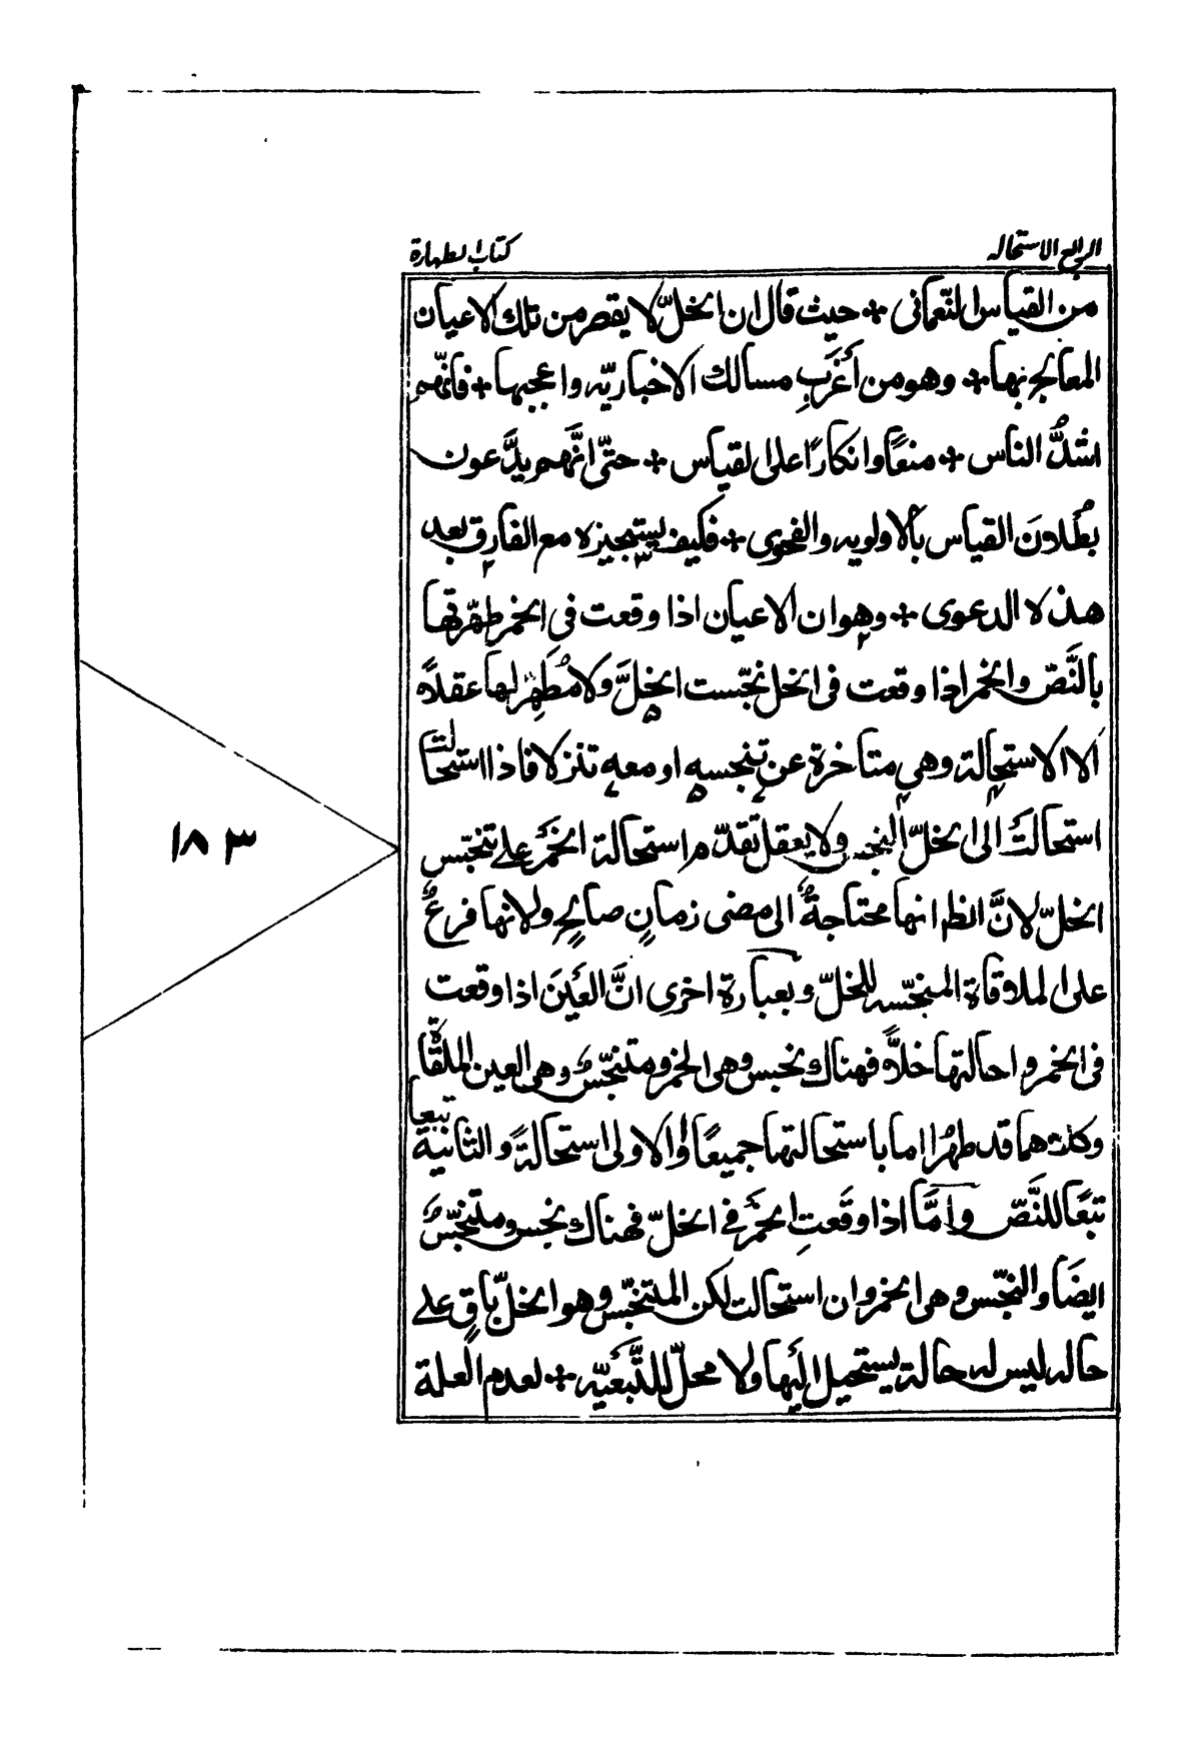 الرابع الاستحاله
كتاب الطهارة
من القياس النّعمانى + حيث قال ان الخلّ لا يقصر من تلك الاعيان
المعالج بها + وهو من أغرَبِ مسالك الاخباريّه واعجبها + فانّهم
اشدُّ الناس + منعًا وانكارًا على القياس + حتّى انَّهم يدَّعون
بطلانَ القياس بالاولويه والفحوى + فكيف يستجيزه مع الفارق بعد
هذه الدعوى + وهو ان الاعيان اذا وقعت في الخمر طهّرتها
بالنَّصّ والخمر اذا وقعت فى الخل نجّست الخلَّ ولا مُطهِّر لها عقلاً
الا الاستحالة وهي متأخرة عن تنجسه او معه تنزلا فاذا استحالت
استحالت الى الخلّ النجس ولا يعقل تقدّم استحالة الخمر على تنجّس
الخلّ لانَّ الظ انها محتاجةٌ الى مضى زمانٍ صالحٍ ولانها فرعٌ
على الملاقاة المنجّسه للخلّ وبعبارة اخرى انَّ العَينَ اذا وقعت
فى الخمر واحالتها خلاًّ فهناك نجس وهى الخمر ومتنجّسٌ وهى العين الملقاة
وكلاهما قد طهُرا اما باستحالتها جميعًا او الاولى استحالةً والثانية تبعا
تبَعًا للنَّصّ وامَّا اذا وقَعتِ الخمَر في الخلّ فهناك نجس ومتنجّسٌ
ايضًا والنجّس وهى الخمر وان استحالت لكن المتنجّس وهو الخلّ باقٍ على
حاله ليس له حالة يستحيل الَيها ولا محلّ للتَّبَعيّه + لعدم العلة
١٨٣